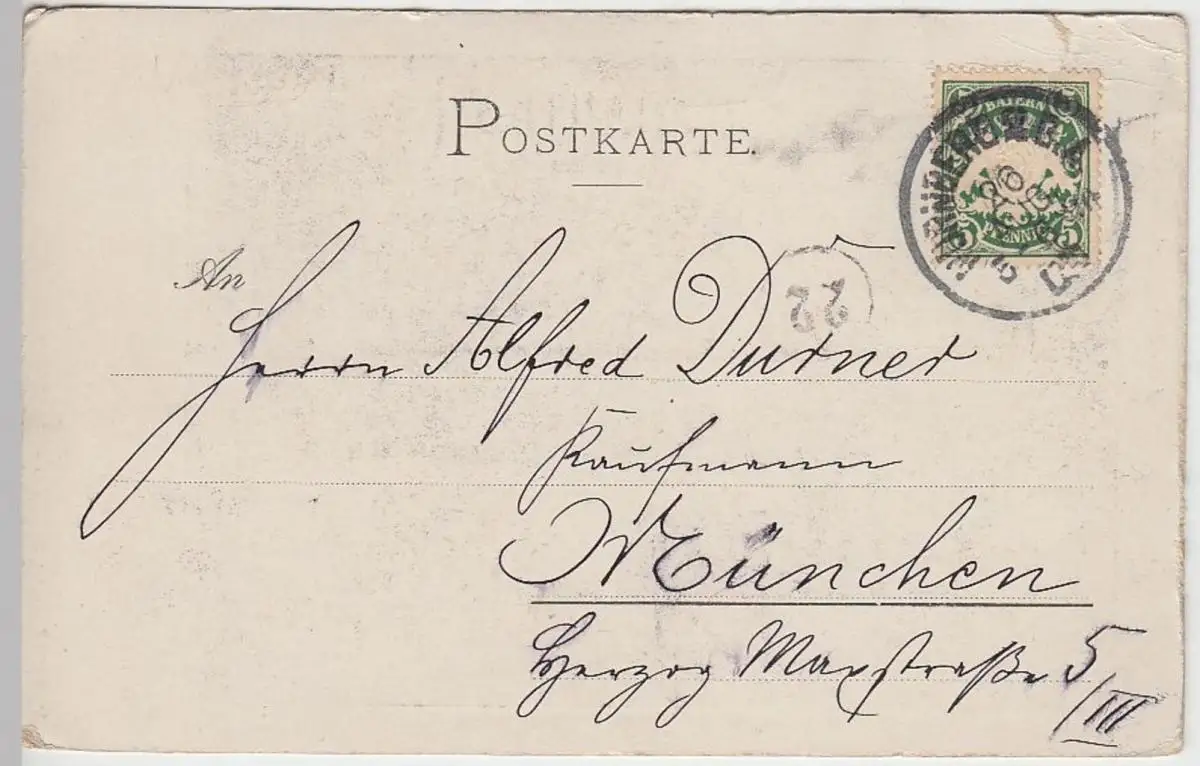 POSTKARTE.
BAYERN
5 5
PFENNIG
NÜRNBERG
22
An
Herrn Alfred Durner
Kaufmann
München
Herzog Maxstraße 5
/III